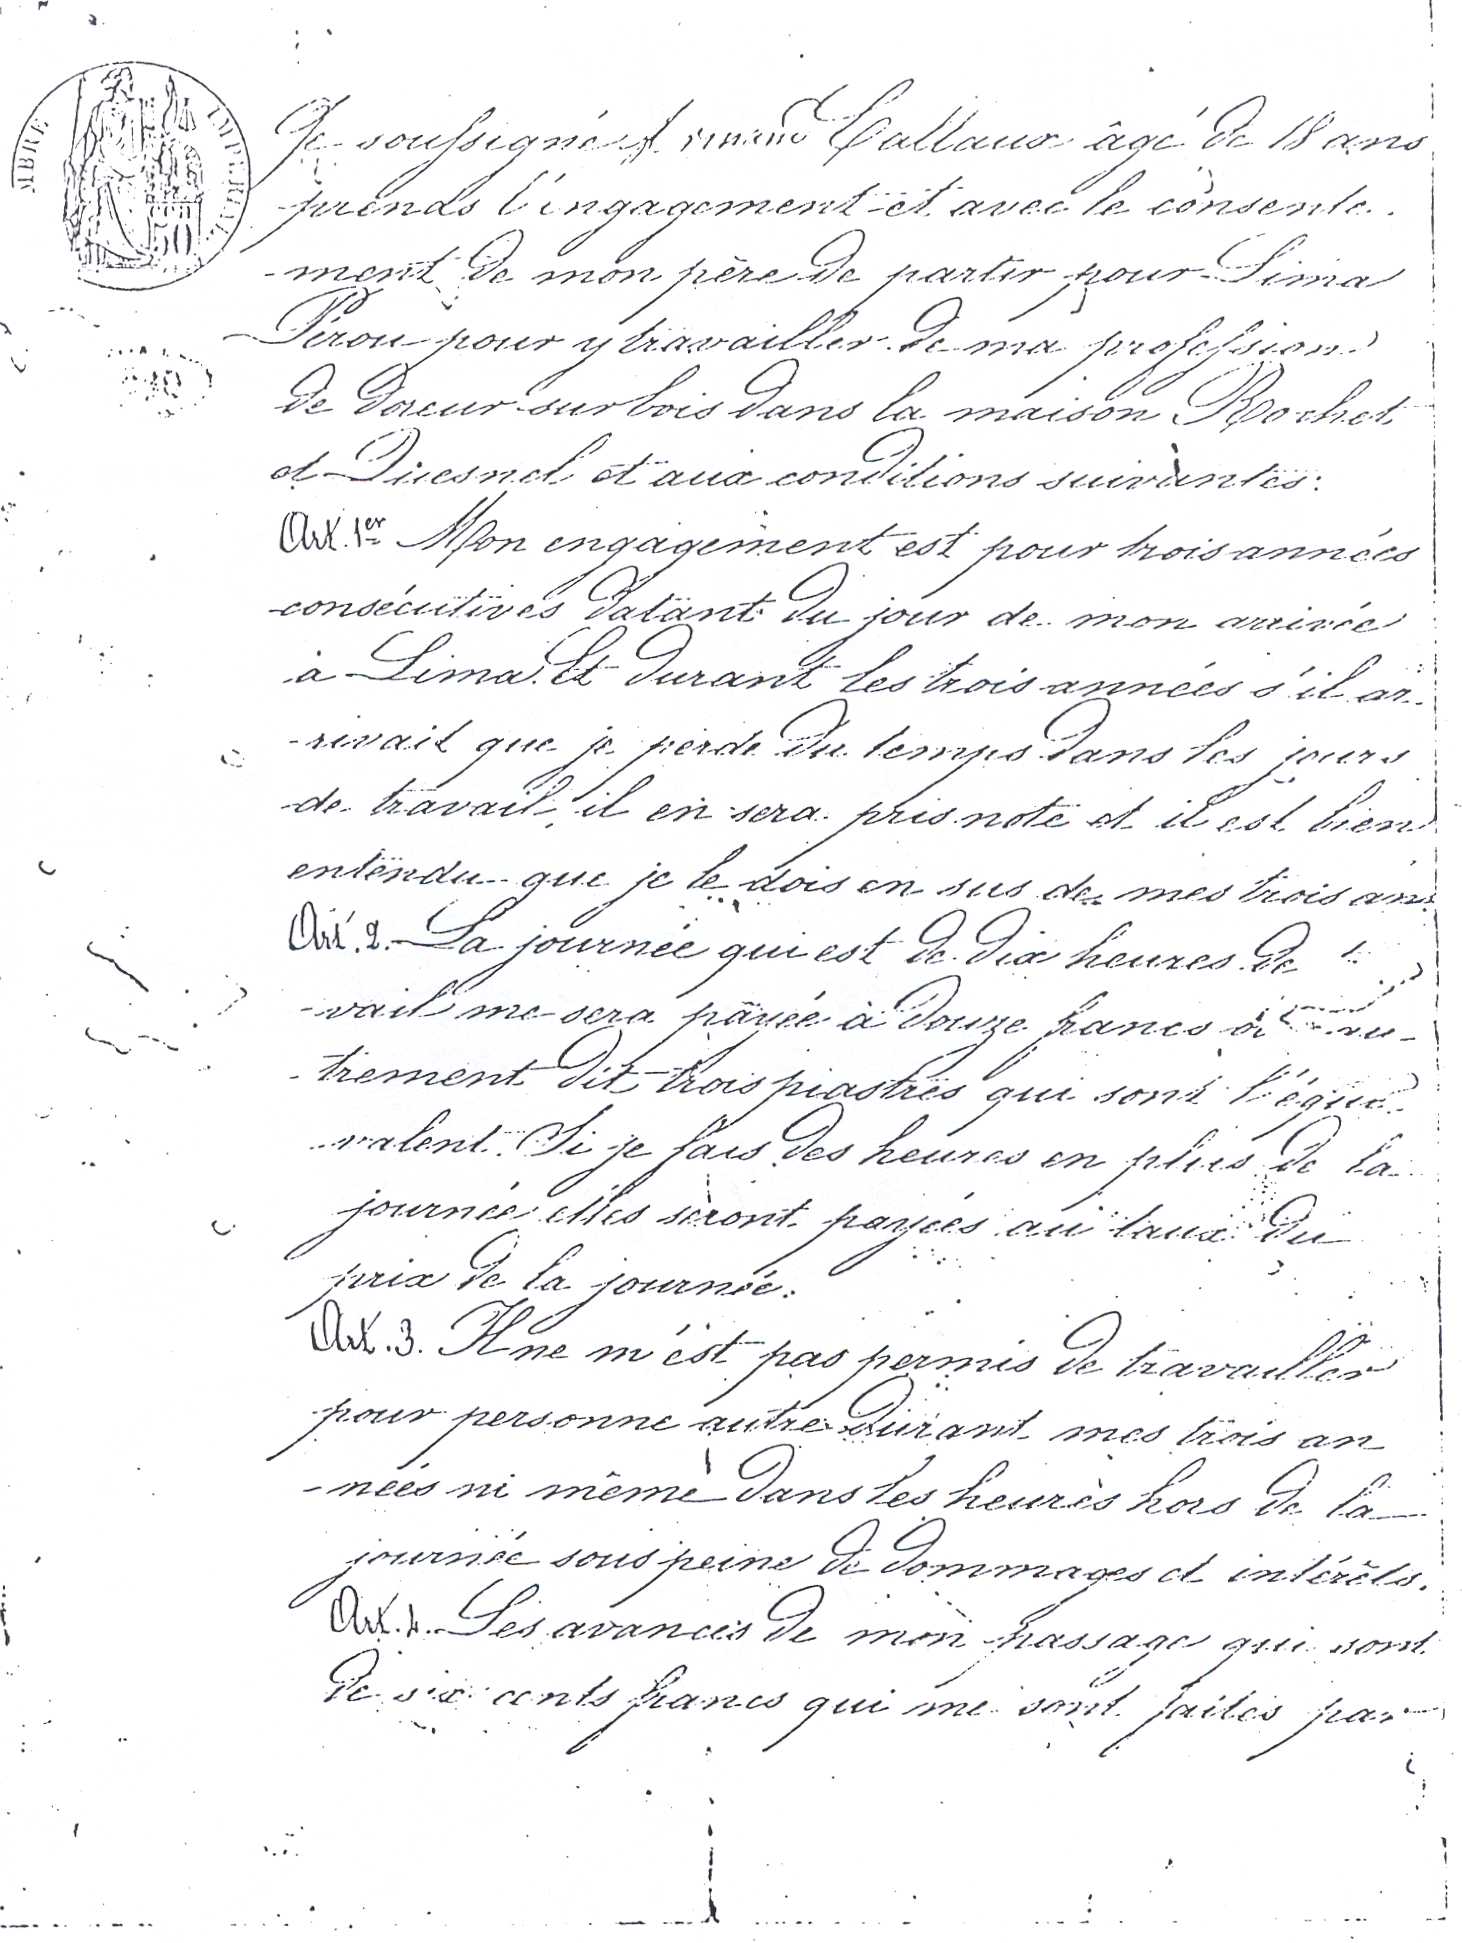 MBRE IMPERIAL
Je soussigné Callaux âgé de 18 ans
prends l'engagement et avec le consente-
-ment de mon père de partir pour Lima
Pérou pour y travailler de ma profession
de doreur sur bois dans la maison Rochet
et Duesnel et aux conditions suivantes:
Art. 1er Mon engagement est pour trois années
consécutives datant du jour de mon arrivée
à Lima. Et durant les trois années s'il ar-
-rivait que je perde du temps dans les jours
de travail, il en sera pris note et il est bien
entendu que je le dois en sus de mes trois ans
Art. 2. La journée qui est de dix heures de
-vail me sera payée à douze francs au-
-trement dit trois piastres qui sont l'équi-
-valent. Si je fais des heures en plus de la
journée elles seront payées au taux du
prix de la journée.
Art. 3. Il ne m'est pas permis de travailler
pour personne autre durant mes trois an
-nées ni même dans les heures hors de la
journée sous peine de dommages et intérêts.
Art. 4. Les avances de mon passage qui sont
de six cents francs qui me sont faites par